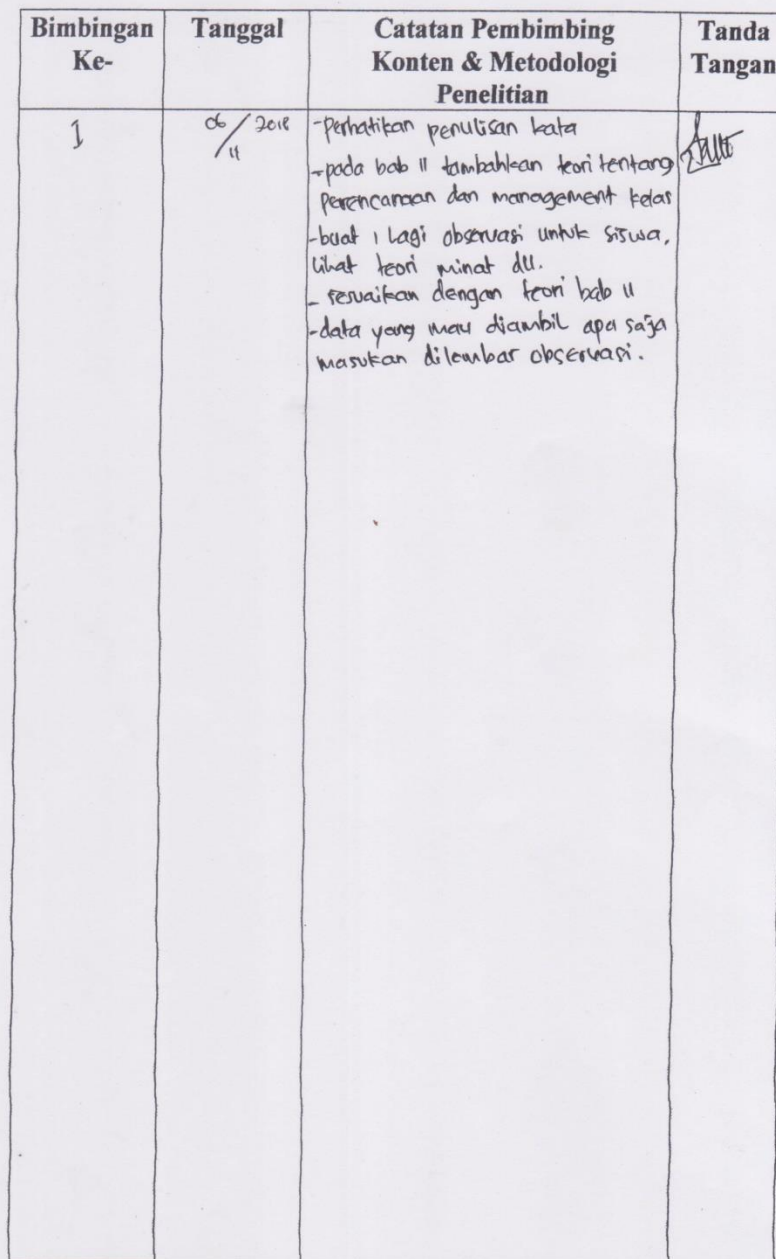 Bimbingan Ke-
Tanggal
Catatan Pembimbing
Konten & Metodologi
Penelitian
Tanda Tangan
1
06/11 2018
-perhatikan penulisan kata
-pada bab II tambahkan teori tentang
perencanaan dan management kelas
-buat 1 lagi observasi untuk siswa,
lihat teori minat dll.
- sesuaikan dengan teori bab II
-data yang mau diambil apa saja
masukan dilembar observasi.